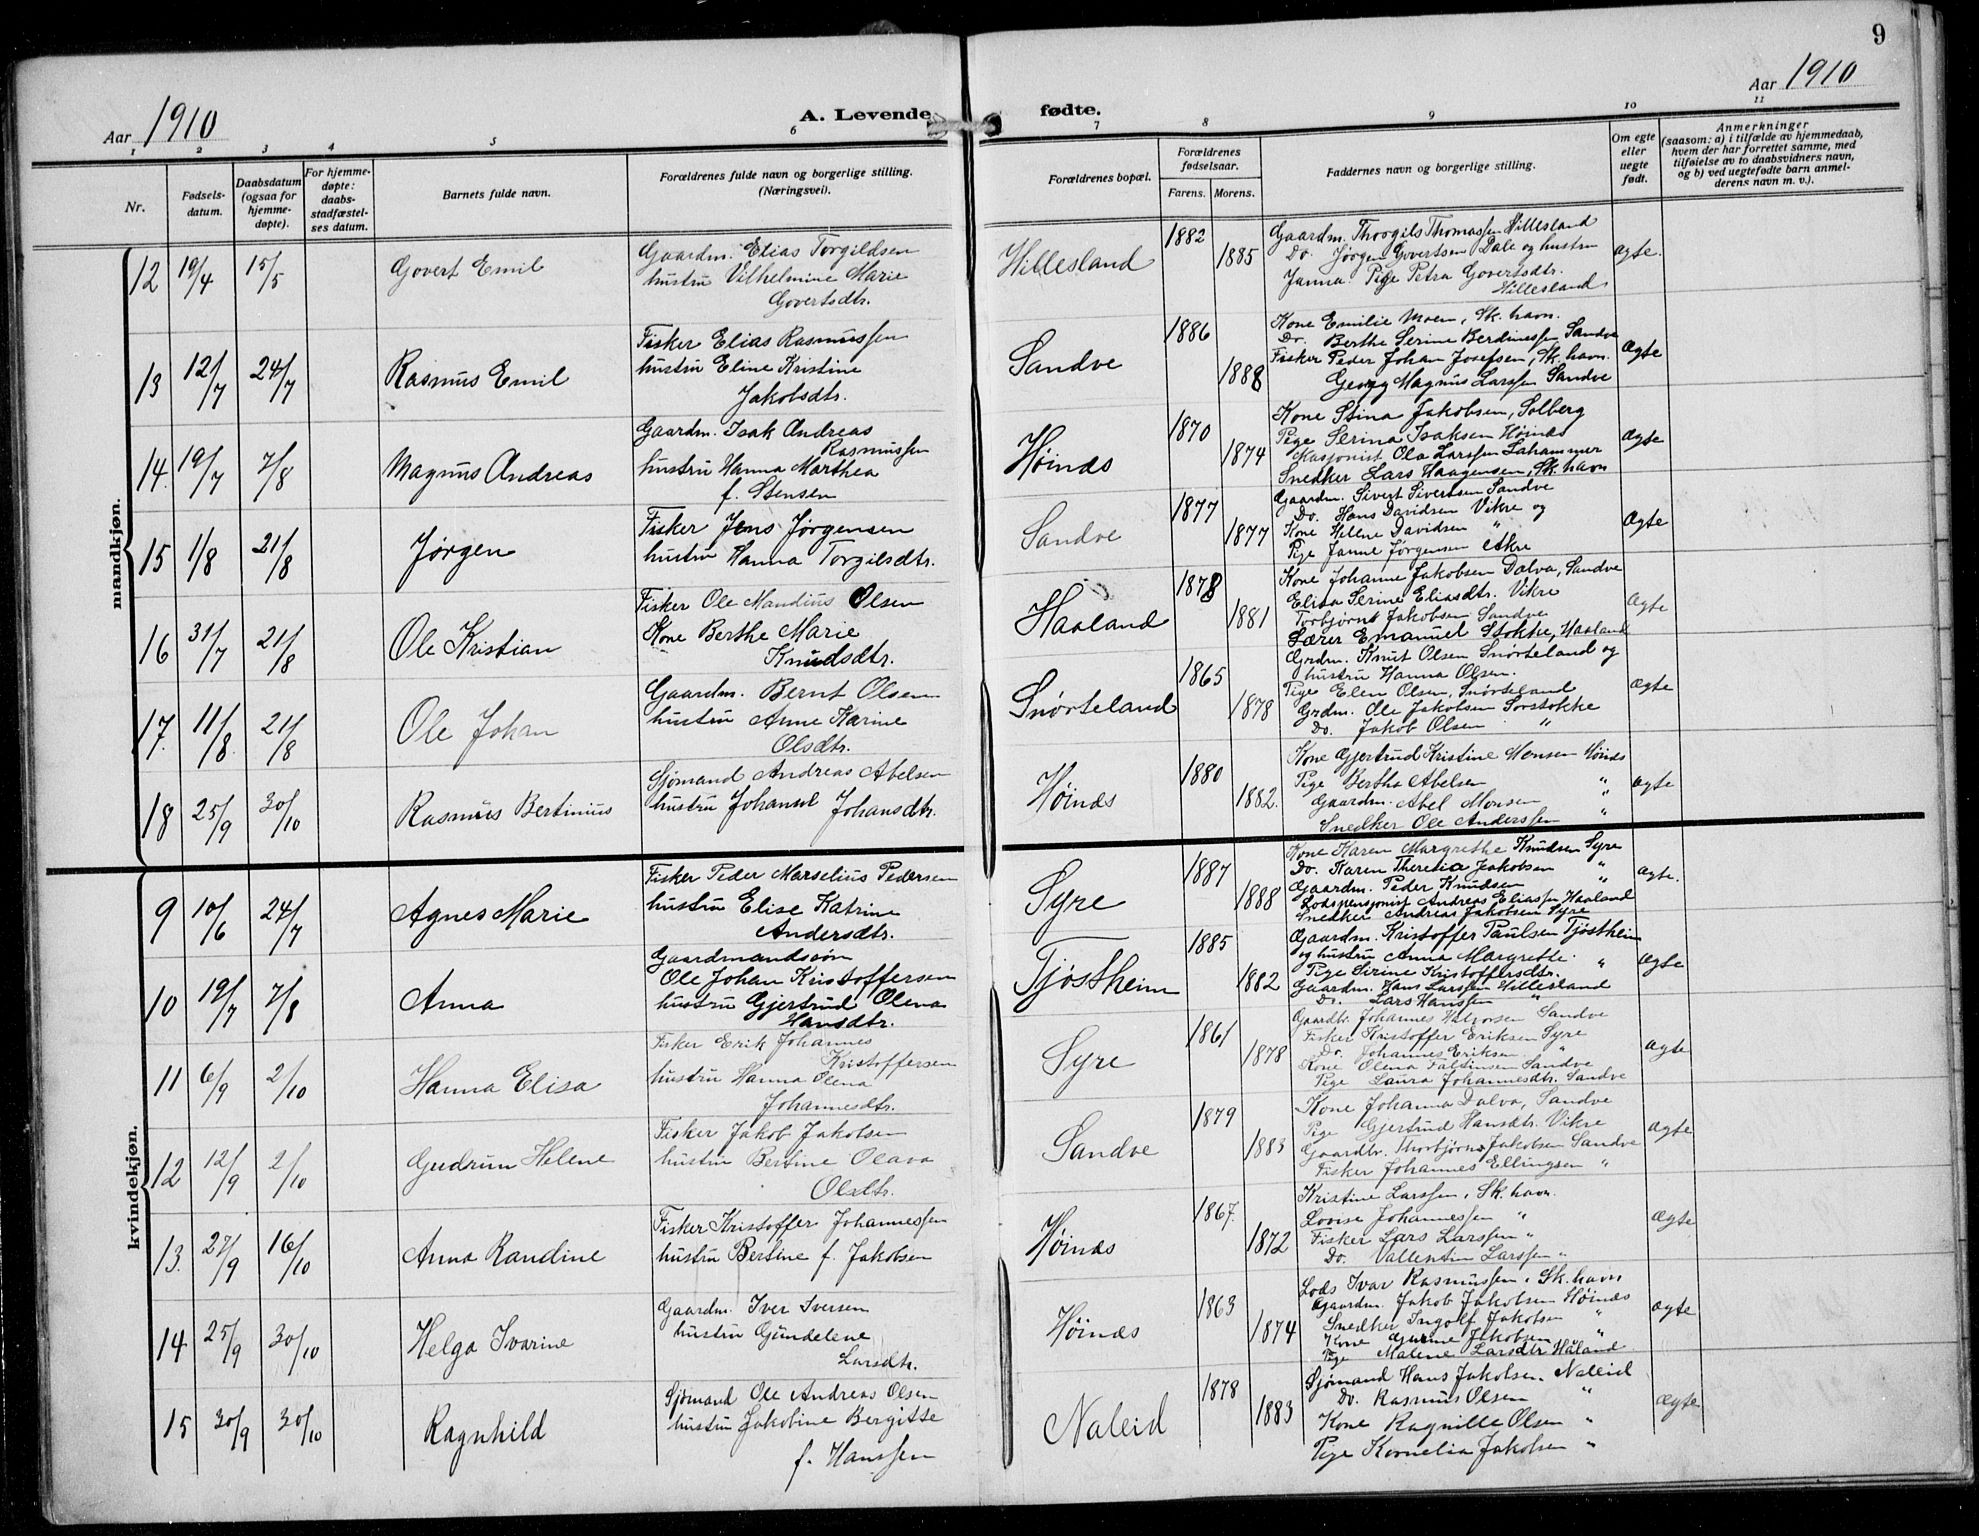 9
Aar 1910
A. Levende fødte.
Aar 1910
1 2 3 4 5 6 7 8 9 10 11
Nr.
Fødsels-
datum.
Daabsdatum
(ogsaa for
hjemme-
døpte).
For hjemme-
døpte:
daabs-
stadfæstel-
ses datum.
Barnets fulde navn.
Forældrenes fulde navn og borgerlige stilling.
(Næringsvei).
Forældrenes bopæl.
Forældrenes
fødselsaar.
Farens. Morens.
Faddernes navn og borgerlige stilling.
Om egte
eller
uegte
født.
Anmerkninger
(saasom: a) i tilfælde av hjemmedaab,
hvem der har forrettet samme, med
tilføielse av to daabsvidners navn,
og b) ved uegtefødte barn anmel-
derens navn m. v.).
mandkjøn.
12 19/4 15/5 Govert Emil
Gaardm. Elias Torgildsen
hustru Vilhelmine Marie
Govertsdtr.
Hillesland 1882 1885
Gaardm. Thorgils Thomassen Hillesland
Do. Jørgen Govertsen Dale og hustru
Janna. Pige Petra Govertsdtr.
Hillesland
ægte.
13 12/7 24/7 Rasmus Emil
Fisker Elias Rasmussen
hustru Eline Kristine
Jakobsdtr.
Sandve 1886 1888
Kone Emilie Moen, Sk.havn.
Do. Berthe Serine Berdinessen Sandve
Fisker Peder Johan Josefsen, Sk.havn.
Georg Magnus Larssen Sandve
Ægte
14 19/7 7/8 Magnus Andreas
Gaardm. Isak Andreas
Rasmussen
hustru Hanna Marthea
f. Stensen
Høines 1870 1874
Kone Stina Jakobsen, Solberg
Pige Serina Isaksen Høines
Ola Larssen Lahammer
Snedker Lars Haagensen, Sk.havn
Ægte
15 1/8 21/8 Jørgen
Fisker Jens Jørgensen
hustru Hanna Torgilsdtr.
Sandve 1877 1877
Gaardm. Sivert Sivertsen Sandve
Do. Hans Davidsen Vikre og
Kone Helene Davidsen "
Pige Janne Jørgensen Akre
Ægte
16 31/7 21/8 Ole Kristian
Fisker Ole Mandius Olsen
Kone Berthe Marie
Knudsdtr.
Haaland 1878 1881
Kone Johanne Jakobsen Dalva, Sandve
Elisa Serine Eliasdtr. Vikre
Torbjørn Jakobsen Sandve
Lærer Emanuel Stokke, Haaland
Ægte
17. 11/8 21/8 Ole Johan
Gaardm. Bernt Olsen
hustru Anne Karine
Olsdtr.
Snørteland 1865 1878
Grdm. Knut Olsen Snørteland og
hustru Hanna Olsen.
Pige Elen Olsen, Snørteland
Grdm. Ole Jakobsen Sørstokke
Do. Jakob Olsen "
Ægte
18 25/9 30/10 Rasmus Bertinius
Sjømand Andreas Abelsen
hustru Johanne Johansdtr.
Høines 1880 1882.
Kone Gjertrud Kristine Monsen Høines
Pige Bertha Abelsen "
Gaardm. Abel Monsen "
Snedker Ole Anderssen "
ægte
kvindekjøn.
9 10/6 24/7 Agnes Marie
Fisker Peder Marselius Pedersen
hustru Elise Katrine
Andersdtr.
Syre 1887 1888
Kone Karen Margrethe Knudsen Syre
Do. Karen Theresia Jakobsen "
Gaardm. Peder Knudsen "
Lodspensjonist Andreas Eliassen Haaland
Snedker Andreas Jakobsen Syre
ægte.
10 19/7 7/8 Anna
Gaardmandssøn
Ole Johan Kristoffersen
hustru Gjertrud Olena
Hansdtr.
Tjøstheim 1885 1882
Gaardm. Kristoffer Paulsen Tjøstheim
og hustru Anna Margrethe.
Pige Serine Kristoffersdtr. "
Gaardm. Hans Larssen Hillesland
Do. Lars Hanssen "
Ægte
11 6/9 2/10 Hanna Elisa
Fisker Erik Johannes
Kristoffersen
hustru Hanna Olena
Johannesdtr.
Syre 1861 1878
Gaardbr. Johannes Halvorsen Sandve
Fisker Kristoffer Eriksen Syre
Do. Johannes Eriksen "
Kone Olena Faltinsen Sandve
Pige Laura Johannesdtr. Sandve
ægte
12 12/9 2/10 Gudrun Helene
Fisker Jakob Jakobsen
hustru Bertine Olava
Olsdtr.
Sandve 1879 1883
Kone Johanna Dalva, Sandve
Pige Gjertrud Hansdtr. Vikre
Gaardbr. Thorbjørn Jakobsen Sandve
Fisker Johannes Ellingsen "
Ægte
13. 27/9 16/10 Anna Randine
Fisker Kristoffer Johannessen
hustru Bertine f. Jakobsen
Høines 1867. 1872
Kristine Larssen, Sk.havn.
Lovise Johannessen "
Fisker Lars Larssen "
Do. Vallentin Larssen "
Ægte
14 25/9 30/10 Helga Ivarine
Gaardm. Iver Iversen
hustru Gundelene
Larsdtr.
Høines 1863 1874
Lods Ivar Rasmussen, Sk.havn
Gaardm. Jakob Jakobsen Høines
Snedker Ingolf Jakobsen "
Kone Gurine Jakobsen "
Pige Malene Larsdtr Håland
ægte
15 30/9 30/10 Ragnhild
Sjømand Ole Andreas Olsen
hustru Jakobine Bergitte
f. Hanssen
Naleid 1878 1883
Sjømand Hans Jakobsen Naleid
Do. Rasmus Olsen "
Kone Ragnille Olsen "
Pige Kornelia Jakobsen "
Ægte